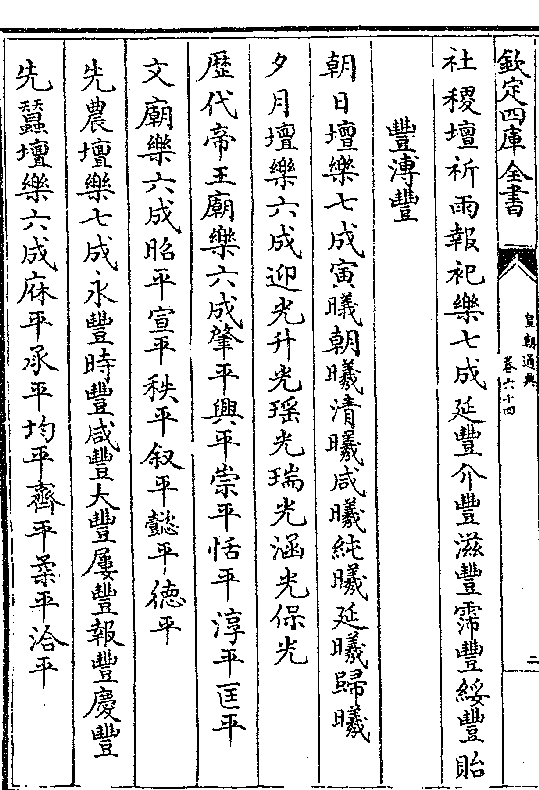 欽定四庫全書
皇朝通典
卷六十四
二
社稷壇祈雨報祀樂七成延豐介豐滋豐霈豐綏豐貽
豐溥豐
朝日壇樂七成寅曦朝曦清曦咸曦純曦延曦歸曦
夕月壇樂六成迎光升光瑶光瑞光涵光保光
歴代帝王廟樂六成肇平興平崇平恬平淳平匡平
文廟樂六成昭平宣平秩平叙平懿平徳平
先農壇樂七成永豐時豐咸豐大豐屢豐報豐慶豐
先蠶壇樂六成庥平承平均平齊平柔平洽平